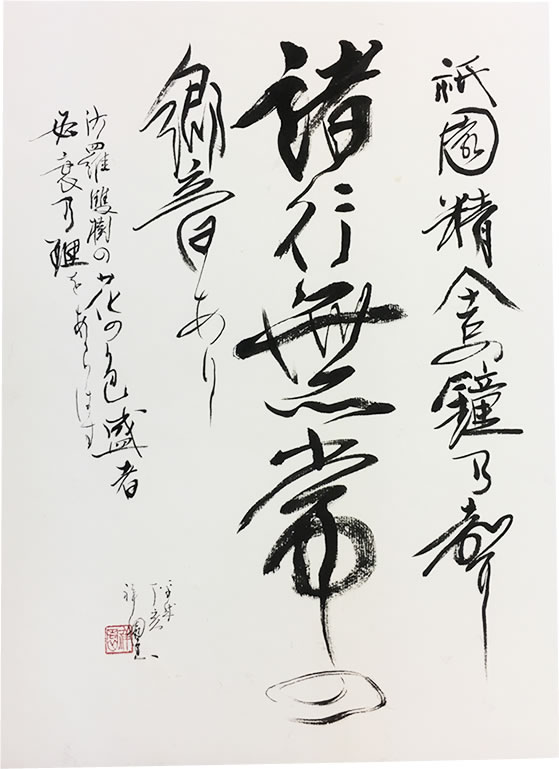 祇園精舎の鐘乃聲
諸行無常の
響あり
沙羅雙樹の花の色盛者
必衰乃理をあらはす